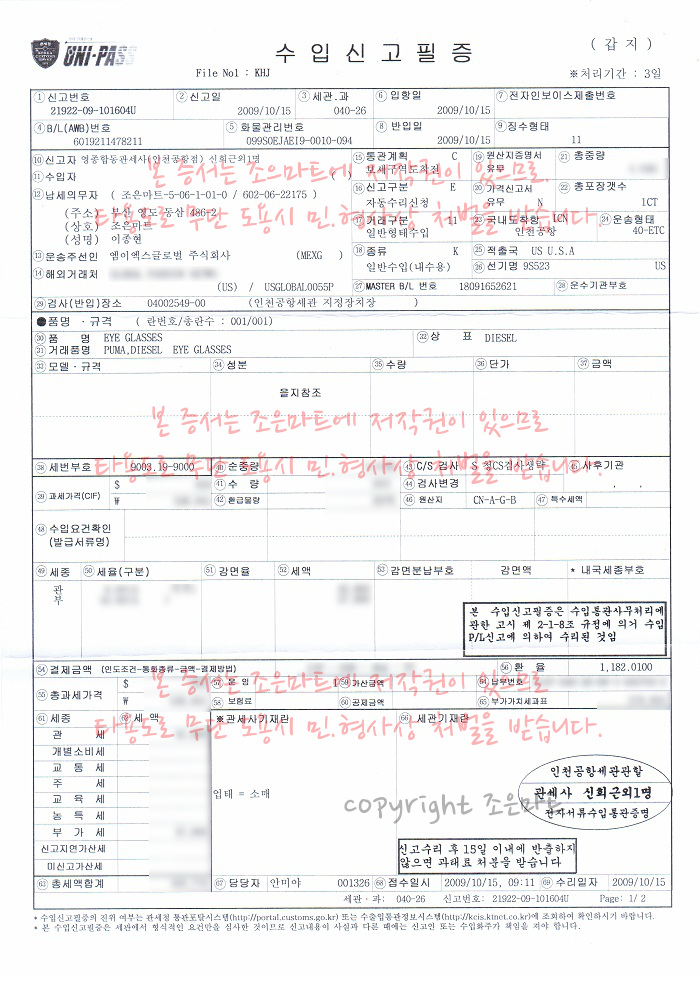 UNI-PASS
수 입 신 고 필 증
( 갑 지 )
File No1 : KHJ
※처리기간 : 3일
① 신고번호 ② 신고일 ③ 세관.과 ⑥ 입항일 ⑦ 전자인보이스제출번호
21922-09-101604U 2009/10/15 040-26 2009/10/15
④ B/L(AWB)번호 ⑤ 화물관리번호 ⑧ 반입일 ⑨ 징수형태
6019211478211 099S0EJAE19-0010-094 2009/10/15 11
⑩ 신고자 영종합동관세사(인천공항점) 신희근외1명 ⑮ 통관계획 C ⑲ 원산지증명서 ㉑ 총중량
보세구역도착전 유무
본 증서는 조은마트에 저작권이 있으므로
⑪ 수입자 ( )
⑫ 납세의무자 ( 조은마트-5-06-1-01-0 / 602-06-22175 ) ⑯ 신고구분 E ⑳ 가격신고서 ㉒ 총포장갯수
자동수리신청 유무 N 1CT
(주소) 부산 영도 동삼 486-2
타용도로 무단 도용시 민.형사상 처벌을 받습니다.
(상호) 조은마트 ⑰ 거래구분 11 ㉓ 국내도착항 ICN ㉔ 운송형태
일반형태수입 인천공항 40-ETC
(성명) 이종현
⑬ 운송주선인 엠이엑스글로벌 주식회사 (MEXG) ⑱ 종류 K ㉕ 적출국 US U.S.A
⑭ 해외거래처 일반수입(내수용) ㉖ 선기명 9S523 US
(US) / USGLOBAL0055P ㉗ MASTER B/L 번호 18091652621 ㉘ 운수기관부호
㉙ 검사(반입)장소 04002549-00 (인천공항세관 지정장치장 )
●품명 · 규격 ( 란번호/총란수 : 001/001)
㉚ 품 명 EYE GLASSES ㉜ 상 표 DIESEL
㉛ 거래품명 PUMA,DIESEL EYE GLASSES
㉝ 모델 · 규격 ㉞ 성분 ㉟ 수량 ㊱ 단가 ㊲ 금액
을지참조
본 증서는 조은마트에 저작권이 있으므로
타용도로 무단 도용시 민.형사상 처벌을 받습니다.
㊳ 세번부호 9003.19-9000 ㊵ 순중량 ㊸ C/S 검사 S 청CS검사생략 ㊺ 사후기관
㊴ 과세가격(CIF) $ ㊶ 수 량 ㊹ 검사변경 . .
₩ ㊷ 환급물량 ㊻ 원산지 CN-A-G-B ㊼ 특수세액
㊽ 수입요건확인
(발급서류명)
㊾ 세종 ㊿ 세율(구분) 51 감면율 52 세액 53 감면분납부호 감면액 * 내국세종부호
관
부
본 수입신고필증은 수입통관사무처리에
관한 고시 제 2-1-8조 규정에 의거 수입
P/L신고에 의하여 수리된 것임
54 결제금액 (인도조건-통화종류-금액-결제방법) 56 환 율 1,182.0100
55 총과세가격 $ 57 운 임 59 가산금액 64 납부번호
₩ 58 보험료 60 공제금액 65 부가가치세과표
본 증서는 조은마트에 저작권이 있으므로
61 세종 62 세 액 ※관세사기재란 66 세관기재란
타용도로 무단 도용시 민.형사상 처벌을 받습니다.
관 세
개별소비세
교 통 세
주 세
교 육 세
업태 = 소매
농 특 세
부 가 세
신고지연가산세
미신고가산세
copyright 조은마트
인천공항세관관할
관세사 신희근외1명
전자서류수입통관증명
신고수리 후 15일 이내에 반출하지
않으면 과태료 처분을 받습니다
63 총세액합계 67 담당자 안미야 001326 68 접수일시 2009/10/15, 09:11 69 수리일자 2009/10/15
세관 · 과: 040-26 신고번호: 21922-09-101604U Page: 1/ 2
* 수입신고필증의 진위 여부는 관세청 통관포탈시스템(http://portal.customs.go.kr) 또는 수출입통관정보시스템(http://kcis.ktnet.co.kr)에 조회하여 확인하시기 바랍니다.
* 본 수입신고필증은 세관에서 형식적인 요건만을 심사한 것이므로 신고내용이 사실과 다른 때에는 신고인 또는 수입화주가 책임을 져야 합니다.